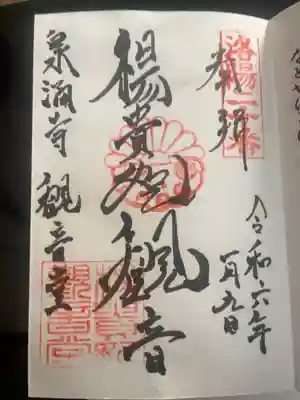 洛陽二十番
奉拝
令和六年
一月九日
楊貴妃観音
泉涌寺
観音堂